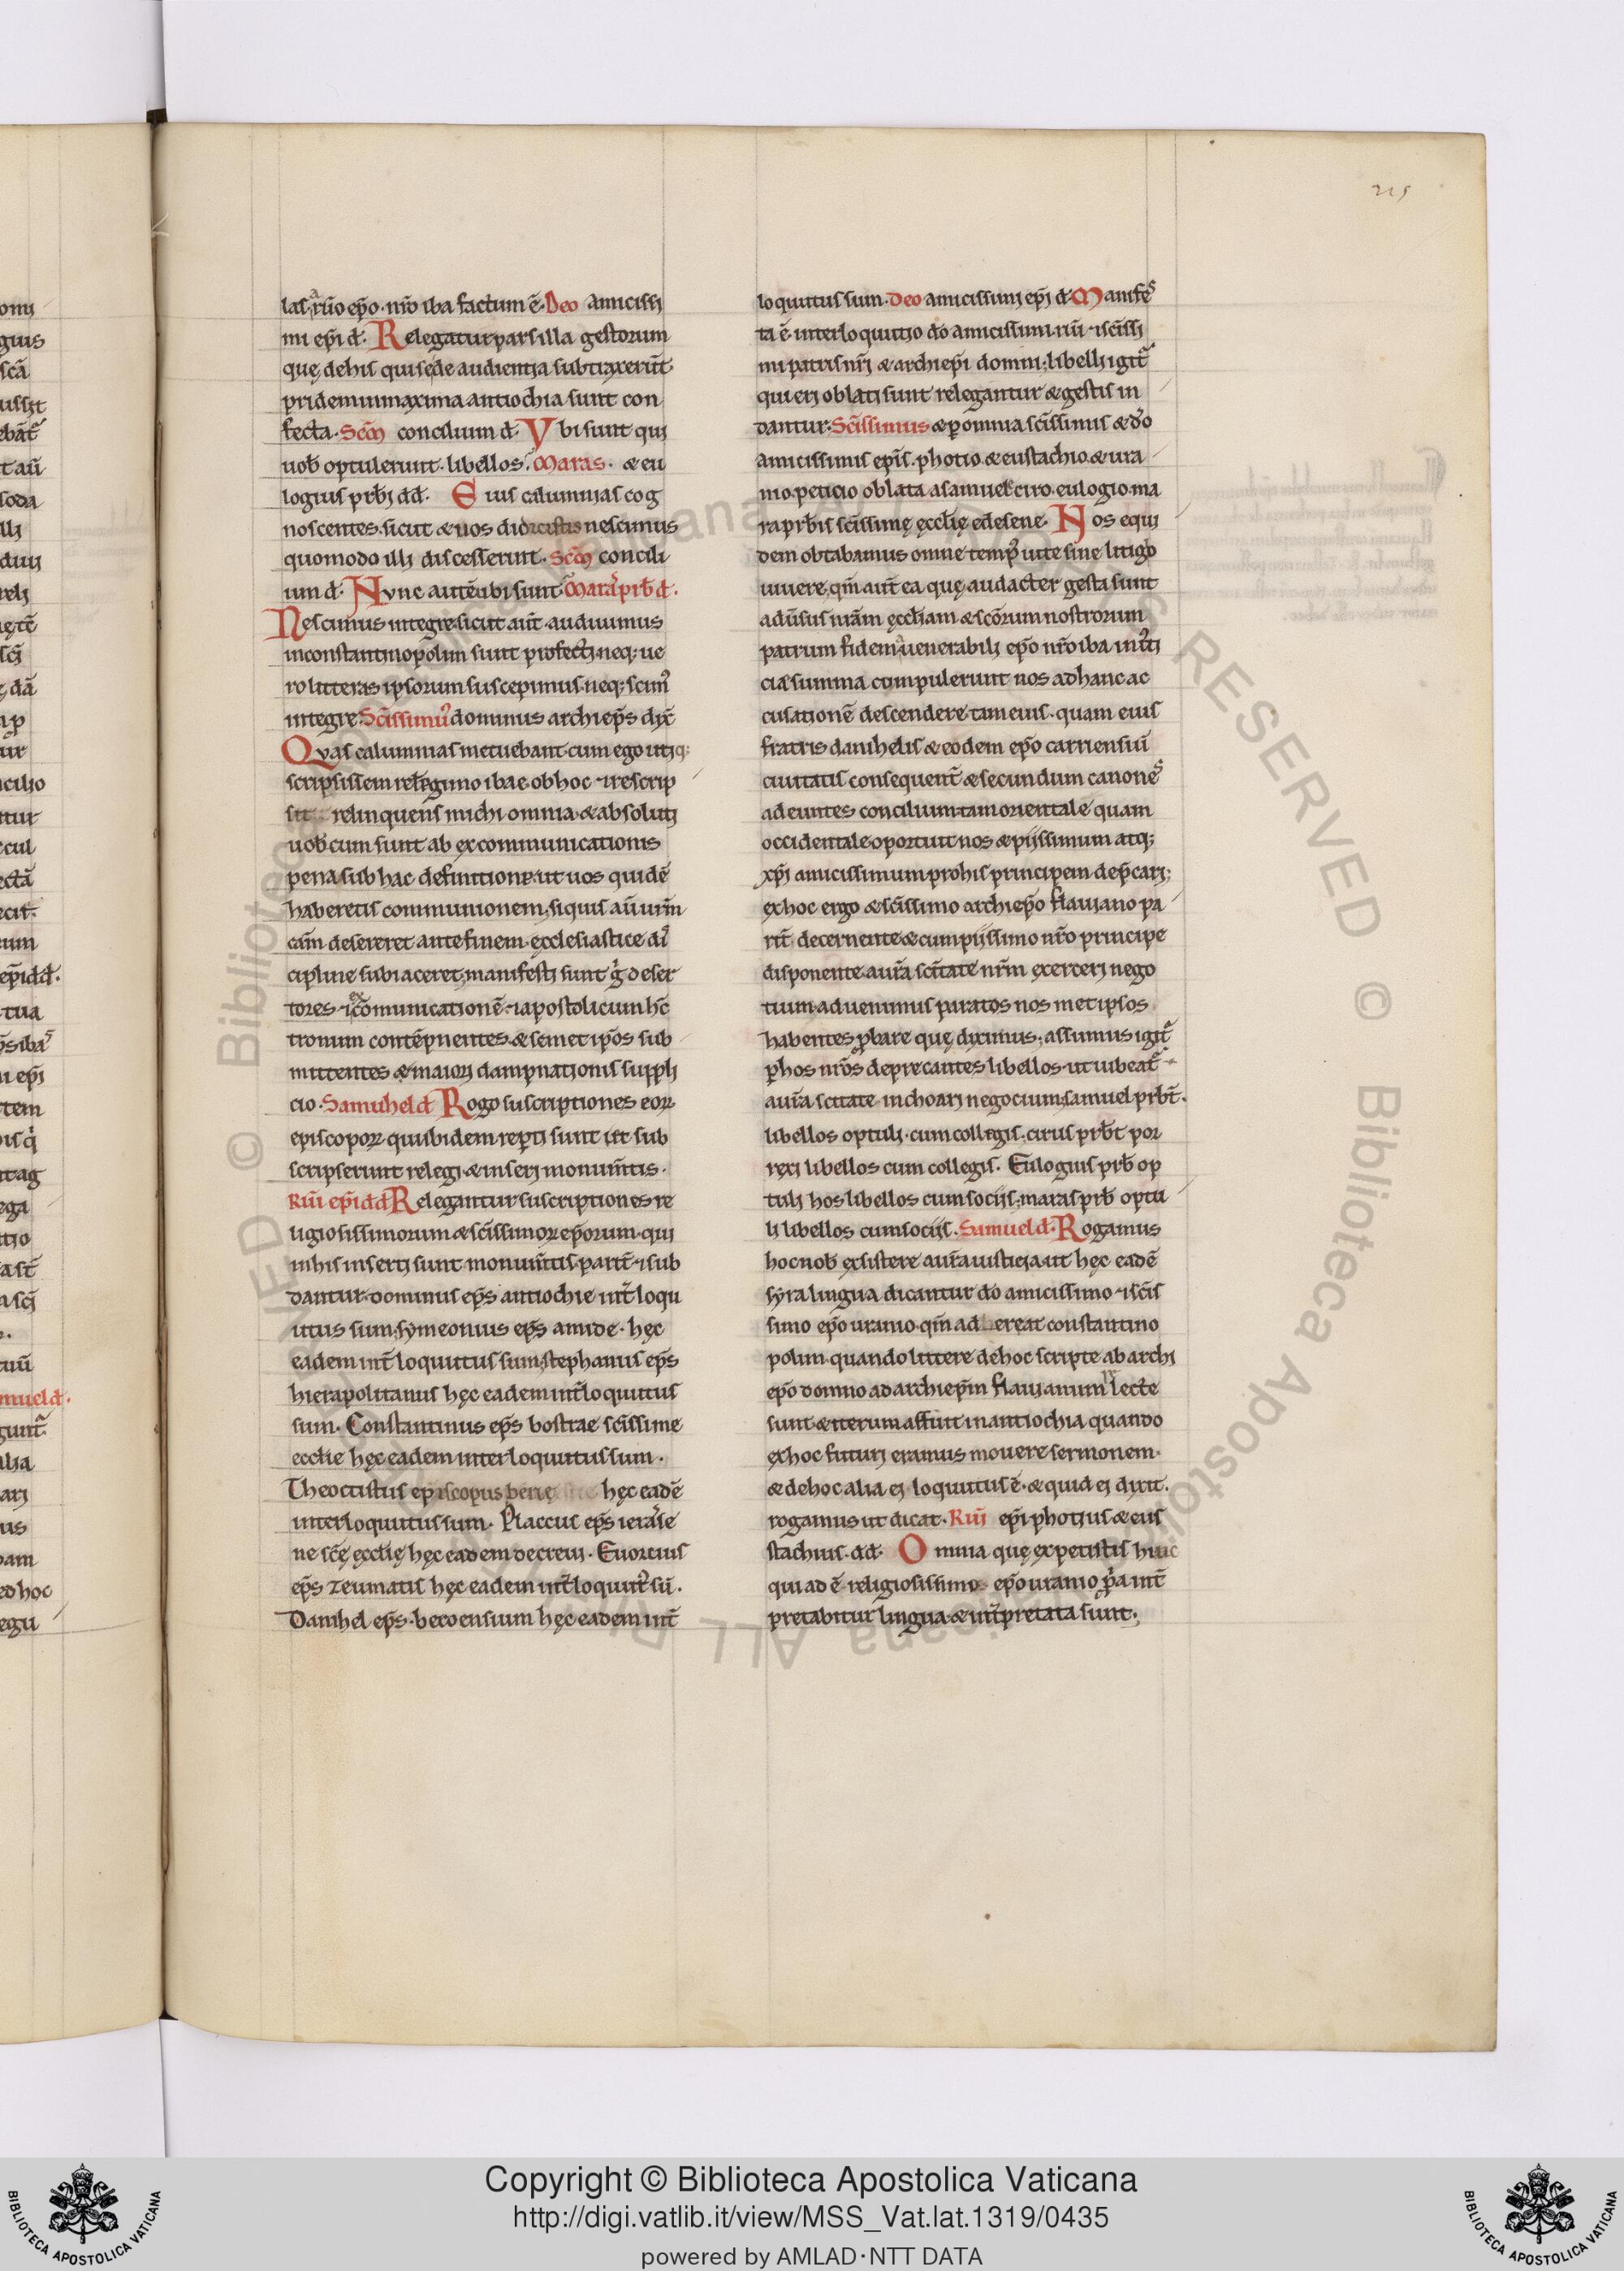 215
las ̃rũo ep̃o · nr̃o iba factum ẽ · Deo amicissi
mi ep̃i d̃. Relegatur pars illa gestorum
quę de his qui se de audientia subtraxerũt
pridem in maxima antiochia sunt con
fecta. Sc̃m concilium d̃. Vbi sunt qui
uob̃ optulerunt · libellos. Maras · & eu
logius prb̃i dd̃. Eius calumnias cog
noscentes. sicut & uos didicistis nescimus
quomodo illi discesserunt. Sc̃m concili
um d̃. Nvnc autẽ ubi sunt. Maras prb̃ d̃.
Nescimus integre. sicut aũt audiuimus
in constantinopolim sunt profecti. neq; ue
ro litteras ipsorum suscepimus. neq; scim᾿
integre. Sc̃issimus dominus archiep̃s dix̃
Qvas calumnias metuebant. cum ego utiq;
scripsissem relegimo ibae. ob hoc ⁊ rescrip
sit relinquens michi omnia. & absoluti
uob̃cum sunt ab excommunicationis
pena. sub hac definitione. ut uos quidẽ
haberetis communionem. siquis aũ ur̃m
cãm desereret ante finem. ecclesiastice di
cipline subiaceret. manifesti sunt g̃ deser
tores. ⁊ excõmunicationẽ ⁊ apostolicum hc̃
tronum contẽpnentes. & semet ip̃os sub
mittentes & maiori dampnationis suppli
cio. Samuhel d̃ Rogo suscriptiones eoꝝ
episcopoꝝ qui ibidem rep̃ti sunt ⁊ sub
scripserunt relegi. & inseri monum̃tis.
Rũi ep̃i dd̃ Relegantur suscriptiones re
ligiosissimorum & sc̃issimoꝝ ep̃orum. qui
in his inserti sunt monum̃tis. parit̃ ⁊ sub
dantur. dominus ep̃s antiochie int̃loqu
utus sum. symeonius ep̃s amide. hęc
eadem int̃loquutus sum. stephanus ep̃s
hierapolitanus hęc eadem int̃loquutus
sum. Constantinus ep̃s bostrae sc̃issime
eccl̃ie hęc eadem interloquutus sum.
Theoctistus episcopus berię hęc eadẽ
interloquutus sum. Placcus ep̃s
ne sc̃ę eccl̃ię hęc eadem decreui. Euorcius
ep̃s zeumatis hęc eadem int̃loquut᾿ sũ.
Danihel ep̃s. beroensium hęc eadem int̃
loquutus sum. Deo amicissimi ep̃i d̃. Manifes
ta ẽ interloquutio dõ amicissimi rũi ⁊ sc̃issi
mi patris nr̃i & archiep̃i domni. libelli igit̃
qui ei oblati sunt relegantur & gestis in
dantur. Sc̃issimus & p̱ omnia sc̃issimis & dõ
amicissimis ep̃is. photio. & eustachio. & ura
nio. peticio oblata a samuel. ciro. eulogio. ma
ra prb̃is sc̃issimę eccl̃ię edesene. Nos equi
dem obtabamus omne temp᾿ uite sine litigio
uiuere. qm̃ aut̃ ea quę audacter gesta sunt
adũsus nr̃am eccl̃iam & sc̃orum nostrorum
patrum fidem a uenerabili ep̃o nr̃o iba
cia summa compulerunt nos ad hanc ac
cusationẽ descendere. tam eius. quam eius
fratris danihelis & eodem ep̃o carriensiũ
ciuitatis. consequent̃ & secundum canones
adeuntes concilium. tam orientalẽ quam
occidentale oportuit nos & piissimum atq;
xp̃i amicissimum pro his principem dep̃cari;
ex hoc ergo & sc̃issimo archiep̃o flauiano pa
rit̃ decernente & cum piissimo nr̃o principe
disponente. aur̃a sc̃itate nr̃m exerceri nego
tium. aduenimus paratos nosmet ipsos
habentes p̱bare quę diximus. assumus igit̃
p̱ hos nr̃os deprecantes libellos. ut iubeat̃
aur̃a sc̃itate inchoari negocium. samuel prb̃t.
libellos optuli. cum collegis. cirus prb̃t por
rexi libellos cum collegis. Eulogius prb̃ op
tuli hos libellos cum sociis. maras prb̃ optu
li libellos cum sociis. Samuel d̃. Rogamus
hoc nob̃ existere aur̃a iusticia. ut hęc eadẽ
syra lingua dicantur dõ amicissimo ⁊ sc̃is
simo ep̃o uranio. qm̃ ad ereat constantino
polim. quando littere de hoc scripte ab archi
ep̃o domno ad archiep̃m flauianum lecte
sunt. & iterum affuit in antiochia quando
ex hoc futuri eramus mouere sermonem.
& de hoc alia ei loquutus ẽ. & quid ei dixit.
rogamus ut dicat. Rũi ep̃i photius & eus
stachius. dd̃. Omnia quę expetistis huic
qui ad ẽ religiosissimo ep̃o uranio p̃a int̃
pretabitur lingua. & int̃pretata sunt.
Copyright © Biblioteca Apostolica Vaticana
http://digi.vatlib.it/view/MSS_Vat.lat.1319/0435
powered by AMLAD·NTT DATA
BIBLIOTECA APOSTOLICA VATICANA
BIBLIOTECA APOSTOLICA VATICANA